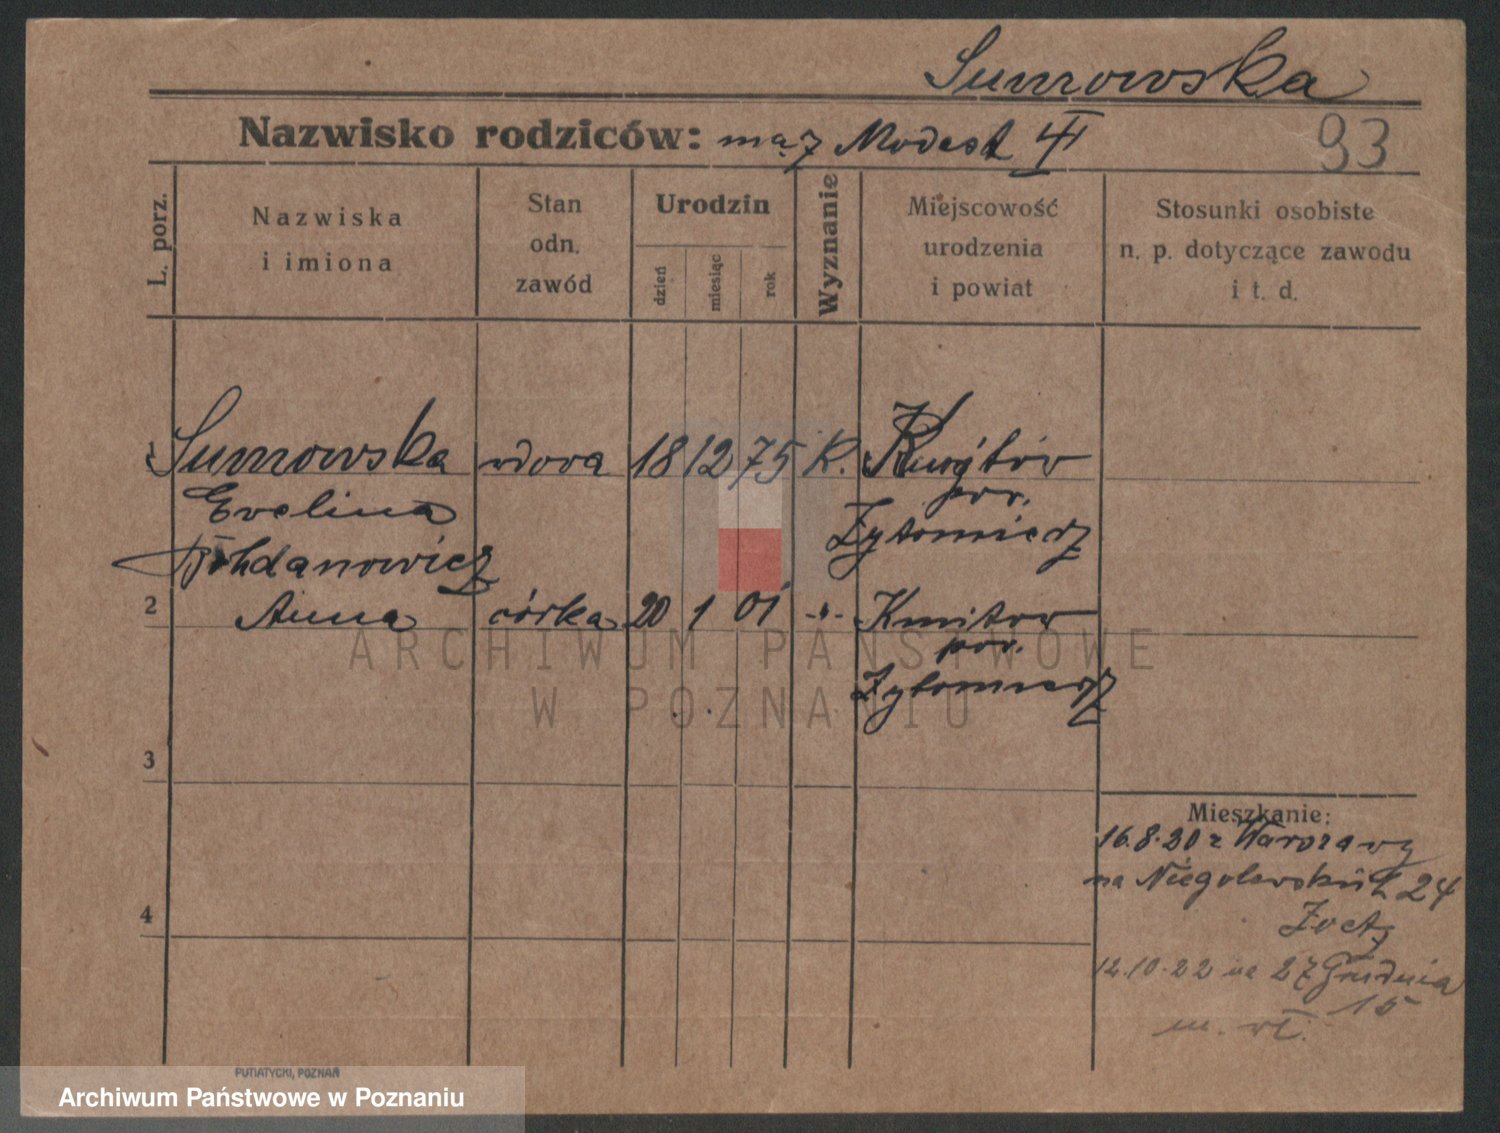 Sumowska
Nazwisko rodziców: mąż Modest
93
L. porz.
Nazwiska
i imiona
Stan
odn.
zawód
Urodzin
dzień
miesiąc
rok
Wyznanie
Miejscowość
urodzenia
i powiat
Stosunki osobiste
n. p. dotyczące zawodu
i t. d.
1 Sumowska wdowa 18 12 75 K.
Ewelina pow.
Bohdanowicz Żytomierz
2 Anna córka 20 1 01 -"- Kmitow
pow.
Żytomierz
3
4
Mieszkanie:
16.8.20 z Warszawy
na Niegolewskich 24
12.10.22 na 27 Grudnia
15
ARCHIWUM PAŃSTWOWE
W POZNANIU
PUTIATYCKI, POZNAŃ
Archiwum Państwowe w Poznaniu